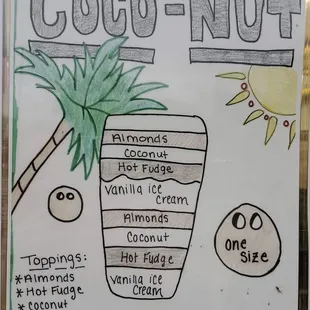 COCO-NUT
Almonds
Coconut
Hot Fudge
Vanilla ice
cream
Almonds
Coconut
Hot Fudge
Vanilla ice
Cream
one
size
Toppings:
*Almonds
*Hot Fudge
*coconut